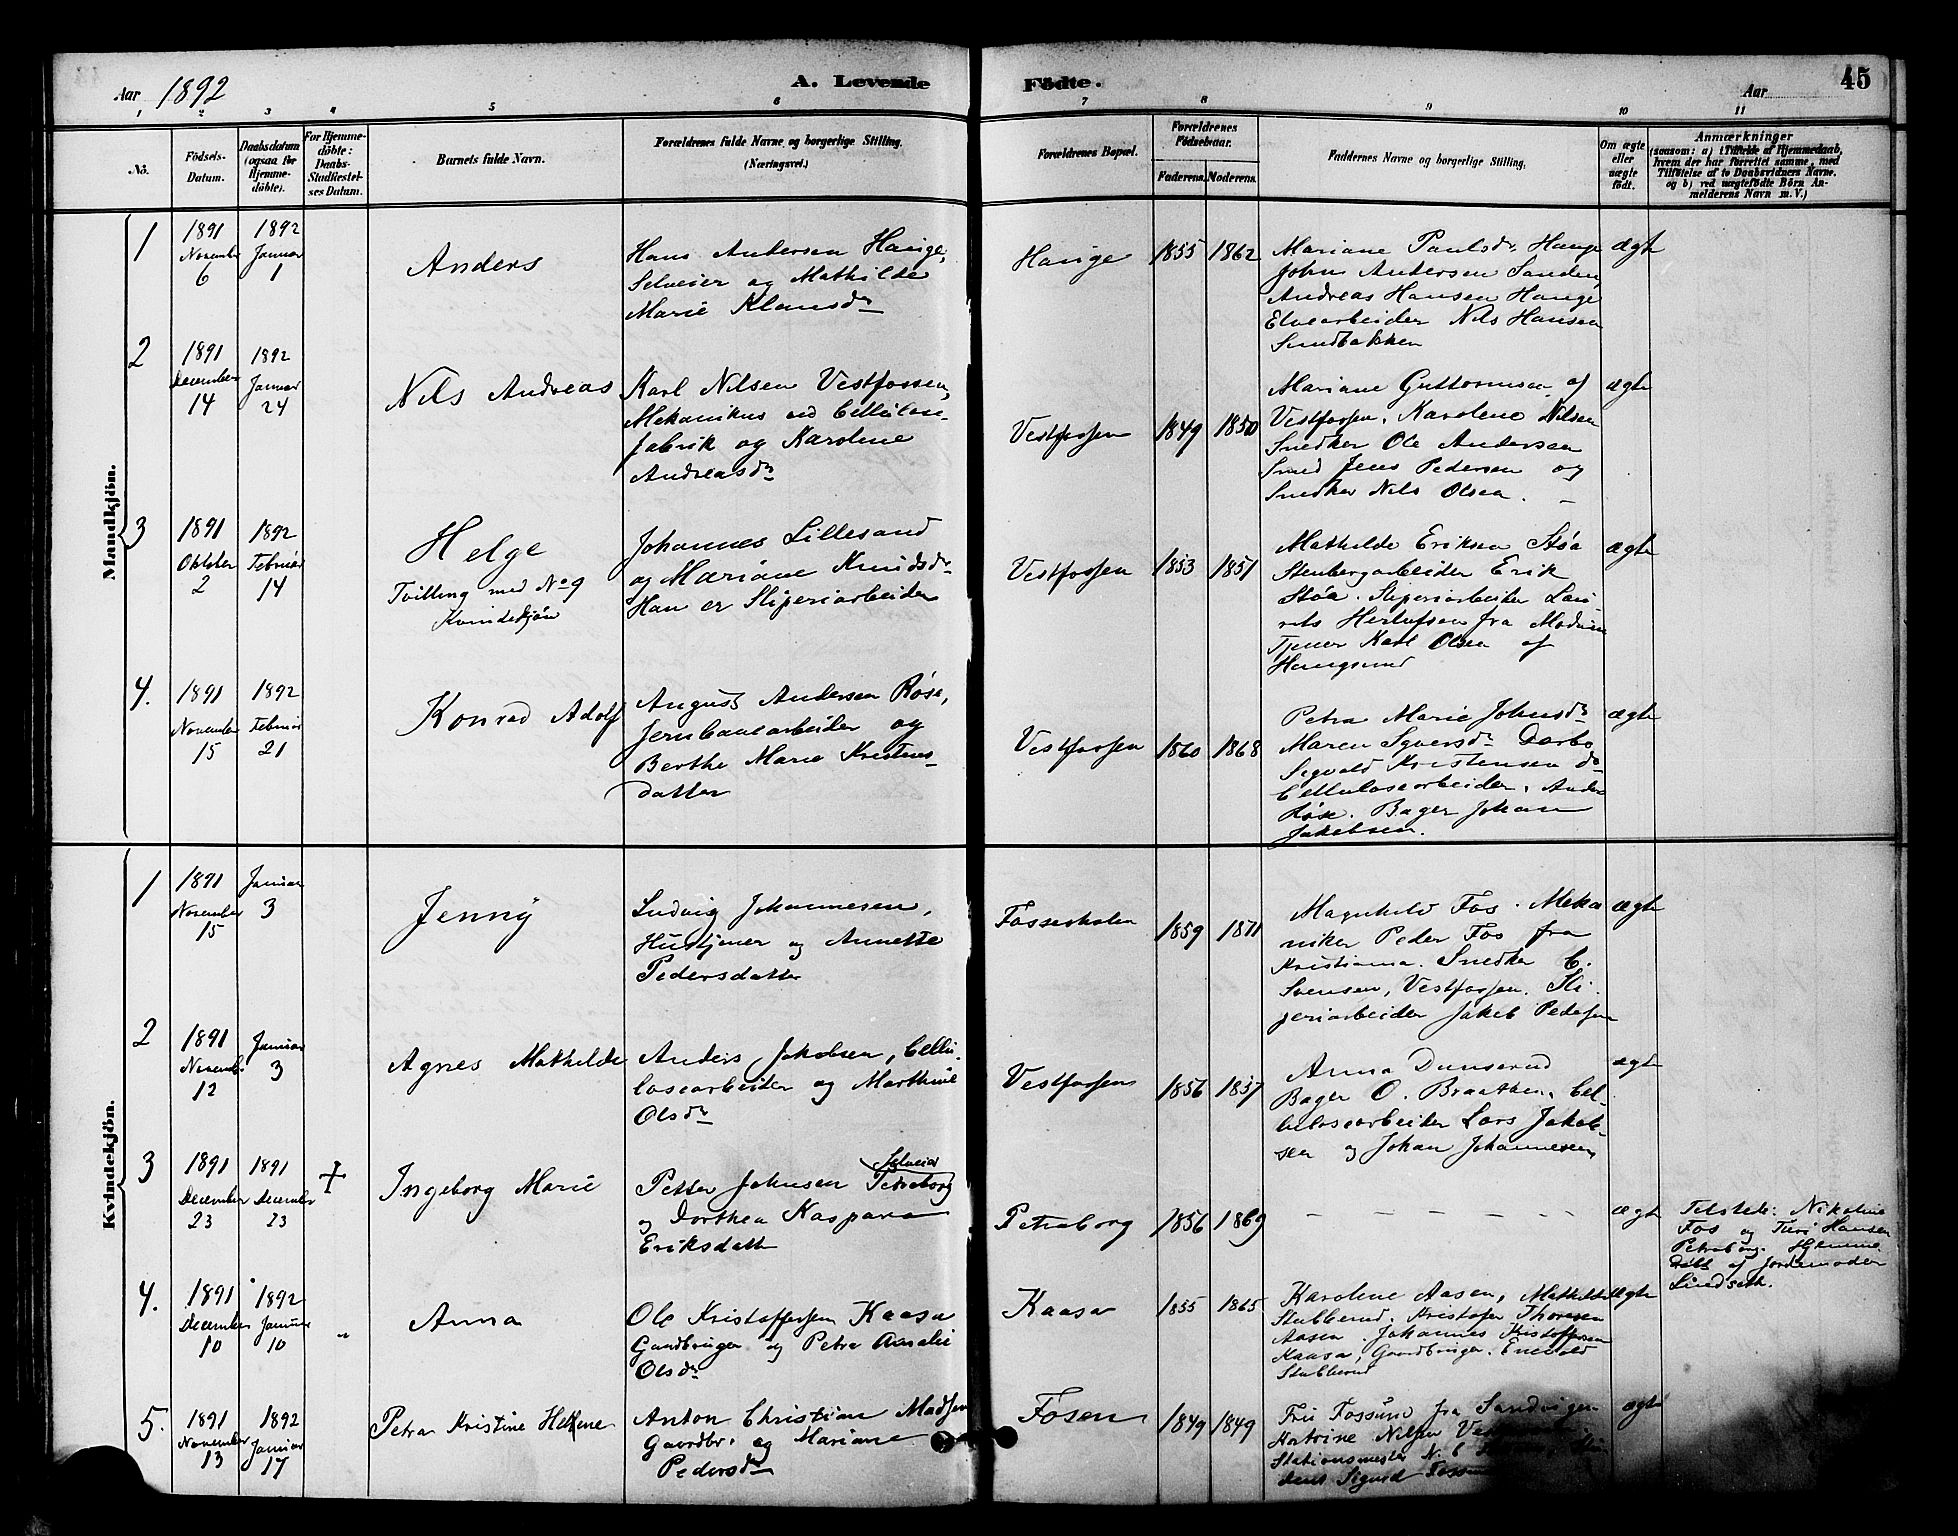 Aar 1892
A. Levende
Födte.
Aar
45
1 2 3 4 5 6 7 8 9 10 11
No.
Födsels-
Datum.
Daabsdatum
(ogsaa for
Hjemme-
döbte).
For Hjemme-
döbte:
Daabs-
Stadfæstel-
ses Datum.
Barnets fulde Navn.
Forældrenes fulde Navne og borgerlige Stilling.
(Næringsvei.)
Forældrenes Bopæl.
Forældrenes
Födselsaar.
Faderens. Moderens.
Faddernes Navne og borgerlige Stilling.
Om ægte
eller
uægte
født.
Anmærkninger
(saasom: a) i Tilfælde af Hjemmedaab,
hvem der har forrettet samme, med
Tilföielse af to Daabsvidners Navne,
og b) ved uægtefödte Börn An-
melderens Navn m. V.)
Mandkjön.
1
1891
November
6
1892
Januar
1
Anders
Hans Andersen Hauge,
Selveier og Mathilde
Marie Klausdr
Hauge
1855
1862
Mariane Paulsdr, Hauge
John Andersen Sanden,
Andreas Hansen Hauge
Elvearbeider Nils Hansen
Sundbakken
ægte
2
1891
December
14
1892
Januar
24
Nils Andreas
Karl Nilsen Vestfossen,
Mekanikus ved Cellulose-
fabrik og Karolene
Andreasdr
Vestfossen
1849
1850
Mariane Guttormsen af
Vestfossen. Karolene Nilsen
Snedker Ole Andersen
Smed Jens Pedersen og
Snedker Nils Olsen.
ægte
3
1891
Oktober
2
1892
Februar
14
Helge
Tvilling med No 9
Kvindekjön
Johannes Lillesand
og Mariane Knudsdr
Han er Sliperiarbeider
Vestfossen
1853
1851
Mathilde Eriksen Støa
Stenbergarbeider Erik
Støa. Sliperiarbeider Lau-
rits Herlufsen fra Modum
Tjener Karl Olsen af
Haugsund
ægte
4.
1891
November
15
1892
Februar
21
Konrad Adolf
August Andersen Røse,
Jernbanearbeider og
Berthe Marie Kristens-
datter
Vestfossen
1860
1868
Petra Marie Johnsdr
Maren Syversdr Darbo
Sigvald Kristensen do
Cellulosearbeider. Anders
Røse. Bager Johan
Jakobsen.
ægte
Kvindekjön.
1
1891
November
15
Januar
3
Jenny
Ludvig Johannesen,
Hustjener og Annette
Pedersdatter
Fosseskolen
1859
1871
Magnhild Fos. Meka
niker Peder Fos fra
Kristiania. Snedker C.
Svensen, Vestfossen. Sli-
periarbeider Jakob Pedersen
ægte
2
1891
Novemb.
12
Januar
3
Agnes Mathilde
Anders Jakobsen, Cellu-
losearbeider og Marthine
Olsdr
Vestfossen
1856
1857
Anna Dunserud
Bager O. Braathen. Cel-
lulosearbeider Lars Jakob-
sen og Johan Johannesen
ægte
3
1891
December
23
1891
December
23
+
Ingeborg Marie
Selveier
Petter Johnsen Petraborg
og Dorthea Kaspara
Eriksdatter
Petraborg
1856
1869
– – – – – –
ægte
Tilstede: Nikoline
Fos og Turi Hansen
Petraborg. Hjemme-
døbt af Jordemoder
Lindseth.
4.
1891
December
10
1892
Januar
10
"
Anna
Ole Kristoffersen Kaasa
Gaardbruger og Petra Amalie
Olsdr
Kaasa
1855
1865
Karolene Aasen, Mathilde
Stubberud. Kristofer Thoresen
Aasen. Johannes Kristoffersen
Kaasa, Gaardbruger. Enevold
Stubberud
ægte
5.
1891
November
13
1892
Januar
17
Petra Kristine Helene
Anton Christian Madsen
Gaardbr. og Mariane
Pedersdr
Fosen
1849
1849
Fru Fossund fra Sandvigen
Katrine Nilsen
Stationsmester N. C.
Sigurd
ægte